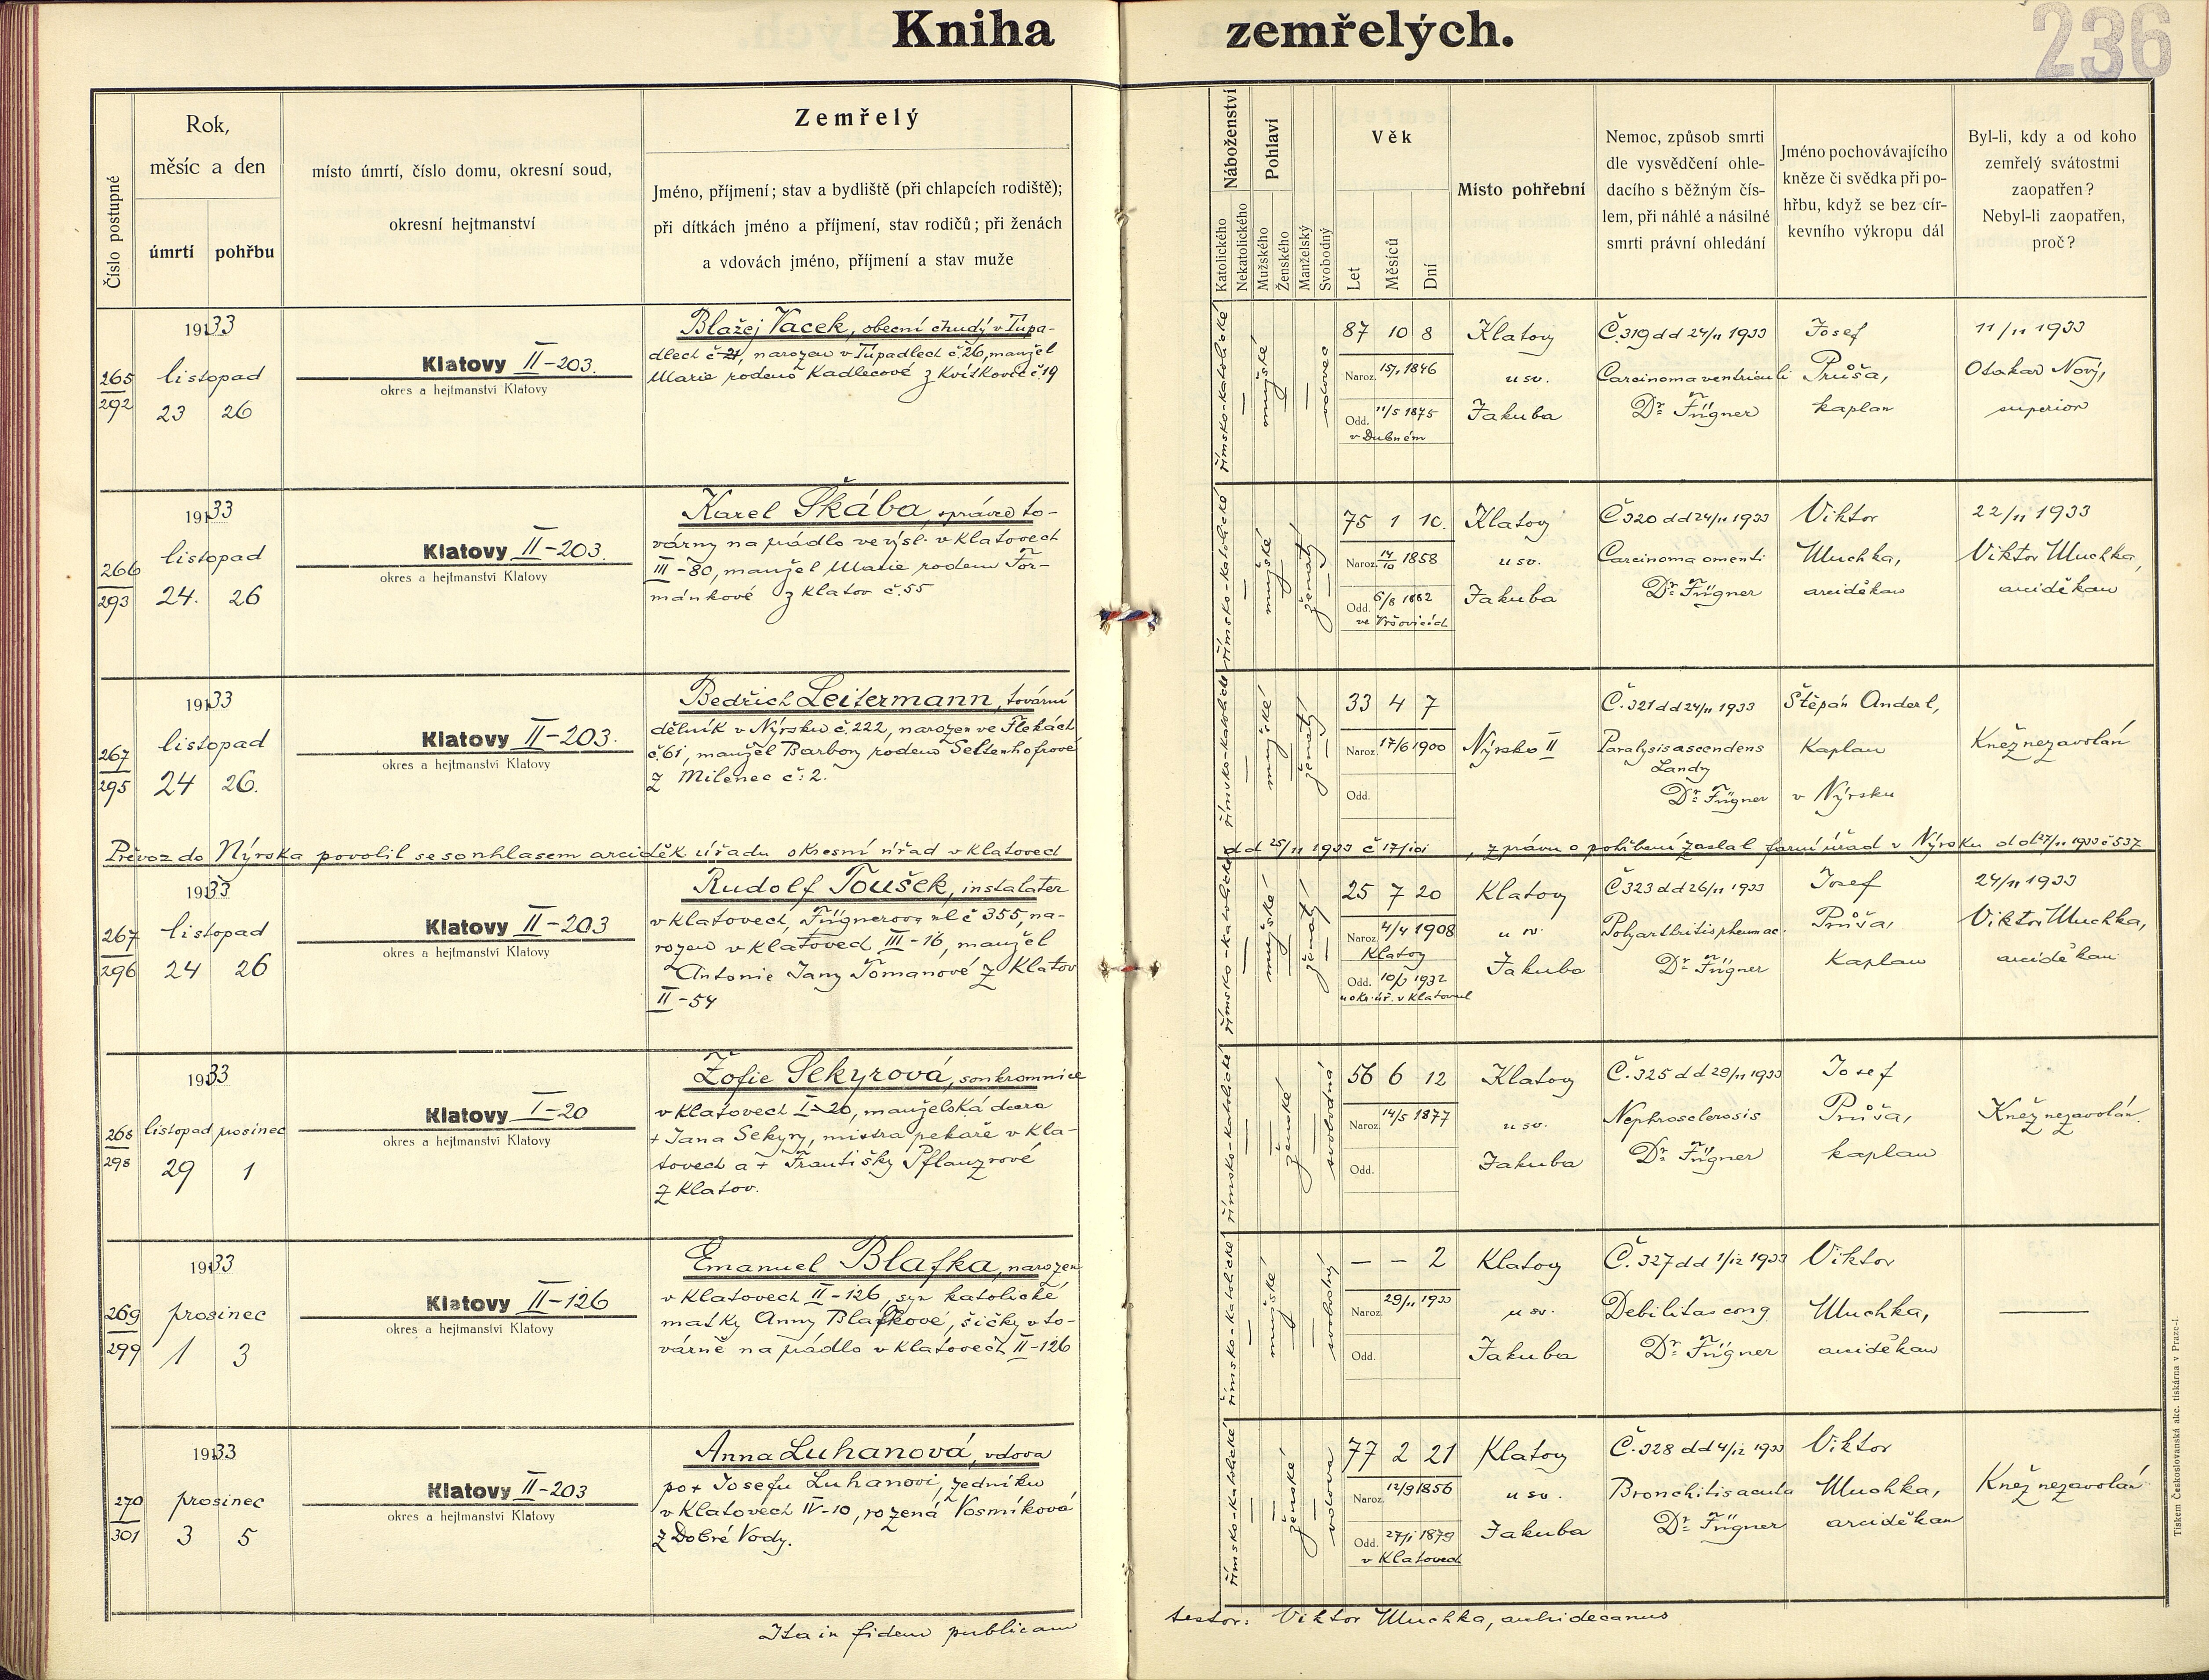 Kniha zemřelých.
236
Číslo postupné
Rok,
měsíc a den
úmrtí pohřbu
místo úmrtí, číslo domu, okresní soud,
okresní hejtmanství
Zemřelý
Jméno, příjmení; stav a bydliště (při chlapcích rodiště);
při dítkách jméno a příjmení, stav rodičů; při ženách
a vdovách jméno, příjmení a stav muže
Náboženství
Katolického
Nekatolického
Pohlaví
Mužského
Ženského
Manželský
Svobodný
Věk
Let
Měsíců
Dní
Místo pohřební
Nemoc, způsob smrti
dle vysvědčení ohle-
dacího s běžným čís-
lem, při náhlé a násilné
smrti právní ohledání
Jméno pochovávajícího
kněze či svědka při po-
hřbu, když se bez cír-
kevního výkropu dál
Byl-li, kdy a od koho
zemřelý svátostmi
zaopatřen?
Nebyl-li zaopatřen,
proč?
265
292
1933
listopad
23 26
Klatovy II-203.
okres a hejtmanství Klatovy
Blažej Vacek, obecní chudý v Tupa-
dlech č 21, narozen v Tupadlech č.26, manžel
Marie rodené Kadlecové z Kvítkovic č.19
římsko-katolické
—
mužské
—
—
vdovec
87 10 8
Naroz. 15/1 1846
Odd. 11/5 1875
v Dubném
Klatovy
u sv.
Jakuba
Č.319 dd 24/11 1933
Carcinoma ventriculi
Dr. Fügner
Josef
Průša,
kaplan
11/11 1933
Otakar Nový,
superior
266
293
1933
listopad
24. 26
Klatovy II-203.
okres a hejtmanství Klatovy
Karel Škába, správce to-
várny na prádlo ve výsl. v Klatovech
III-80, manžel Marie rodem For-
mánkové z Klatov č.55
římsko-katolické
—
mužské
—
ženatý
—
75 1 10.
Naroz. 14/10 1858
Odd. 5/8 1882
ve Vršovicích
Klatovy
u sv.
Jakuba
Č 320 dd 24/11 1933
Carcinoma omenti
Dr. Fügner
Viktor
Muchka,
arciděkan
22/11 1933
Viktor Muchka,
arciděkan
267
295
1933
listopad
24 26.
Klatovy II-203.
okres a hejtmanství Klatovy
Bedřich Leitermann, tovární
dělník v Nýrsku č.222, narozen ve Flekách
č.61, manžel Barbory rodem Seltenhofrové
z Milenec č: 2.
římsko-katolické
—
mužské
—
ženatý
—
33 4 7
Naroz. 17/6 1900
Odd.
Nýrsko II
Č.321 dd 24/11 1933
Paralysis ascendens
Landry
Dr. Fügner
Štěpán Anderl,
Kaplan
v Nýrsku
Kněz nezavolán
Převoz do Nýrska povolil se souhlasem arciděk úřadu okresní úřad v Klatovech dd 25/11 1933 č 17/101, zprávu o pohřbení zaslal farní úřad v Nýrsku dd 27/11 1933 č 537
267
296
1933
listopad
24 26
Klatovy II-203
okres a hejtmanství Klatovy
Rudolf Toušek, instalater
v Klatovech, Fügnerova ul č 355, na-
rozen v Klatovech III-16, manžel
Antonie Jany Tomanové z Klatov
II-54
římsko-katolické
—
mužské
—
ženatý
—
25 7 20
Naroz. 4/4 1908
Klatovy
Odd. 1932
u okr. úř. v Klatovech
Klatovy
u sv.
Jakuba
Č 323 dd 26/11 1933
Polyarthritis rheumac.
Dr. Fügner
Josef
Průša,
Kaplan
24/11 1933
Viktor Muchka,
arciděkan
268
298
1933
listopad prosinec
29 1
Klatovy I-20
okres a hejtmanství Klatovy
Žofie Sekyrová, soukromnice
v Klatovech I-20, manželská dcera
+ Jana Sekyry, mistra pekaře v Kla-
tovech a + Františky Pflanzrové
z Klatov.
římsko-katolické
—
—
ženské
—
svobodná
56 6 12
Naroz. 14/5 1877
Odd.
Klatovy
u sv.
Jakuba
Č.325 dd 29/11 1933
Nephrosclerosis
Dr. Fügner
Josef
Průša,
kaplan
Kněz nezavolán.
269
299
1933
prosinec
1 3
Klatovy II-126
okres a hejtmanství Klatovy
Emanuel Blafka, narozen
v Klatovech II-126, syn katolické
matky Anny Blafkové, šičky v to-
várně na prádlo v Klatovech II-126
římsko-katolické
—
mužské
—
—
svobodný
— — 2
Naroz. 29/11 1933
Odd.
Klatovy
u sv.
Jakuba
Č.327 dd 1/12 1933
Debilitas cong.
Dr. Fügner
Viktor
Muchka,
arciděkan
—
270
301
1933
prosinec
3 5
Klatovy II-203
okres a hejtmanství Klatovy
Anna Luhanová, vdova
po + Josefu Luhanovi, zedníku
v Klatovech IV-10, rozená Vosmíková
z Dobré Vody.
římsko-katolické
—
—
ženské
—
vdova
77 2 21
Naroz. 12/9 1856
Odd. 27/1 1879
v Klatovech
Klatovy
u sv.
Jakuba
Č.328 dd 4/12 1933
Bronchitis acuta
Dr. Fügner
Viktor
Muchka,
arciděkan
Kněz nezavolán
Ita in fidem publicam testor: Viktor Muchka, archidecanus
Tiskem Českoslovanská akc. tiskárna v Praze-I.